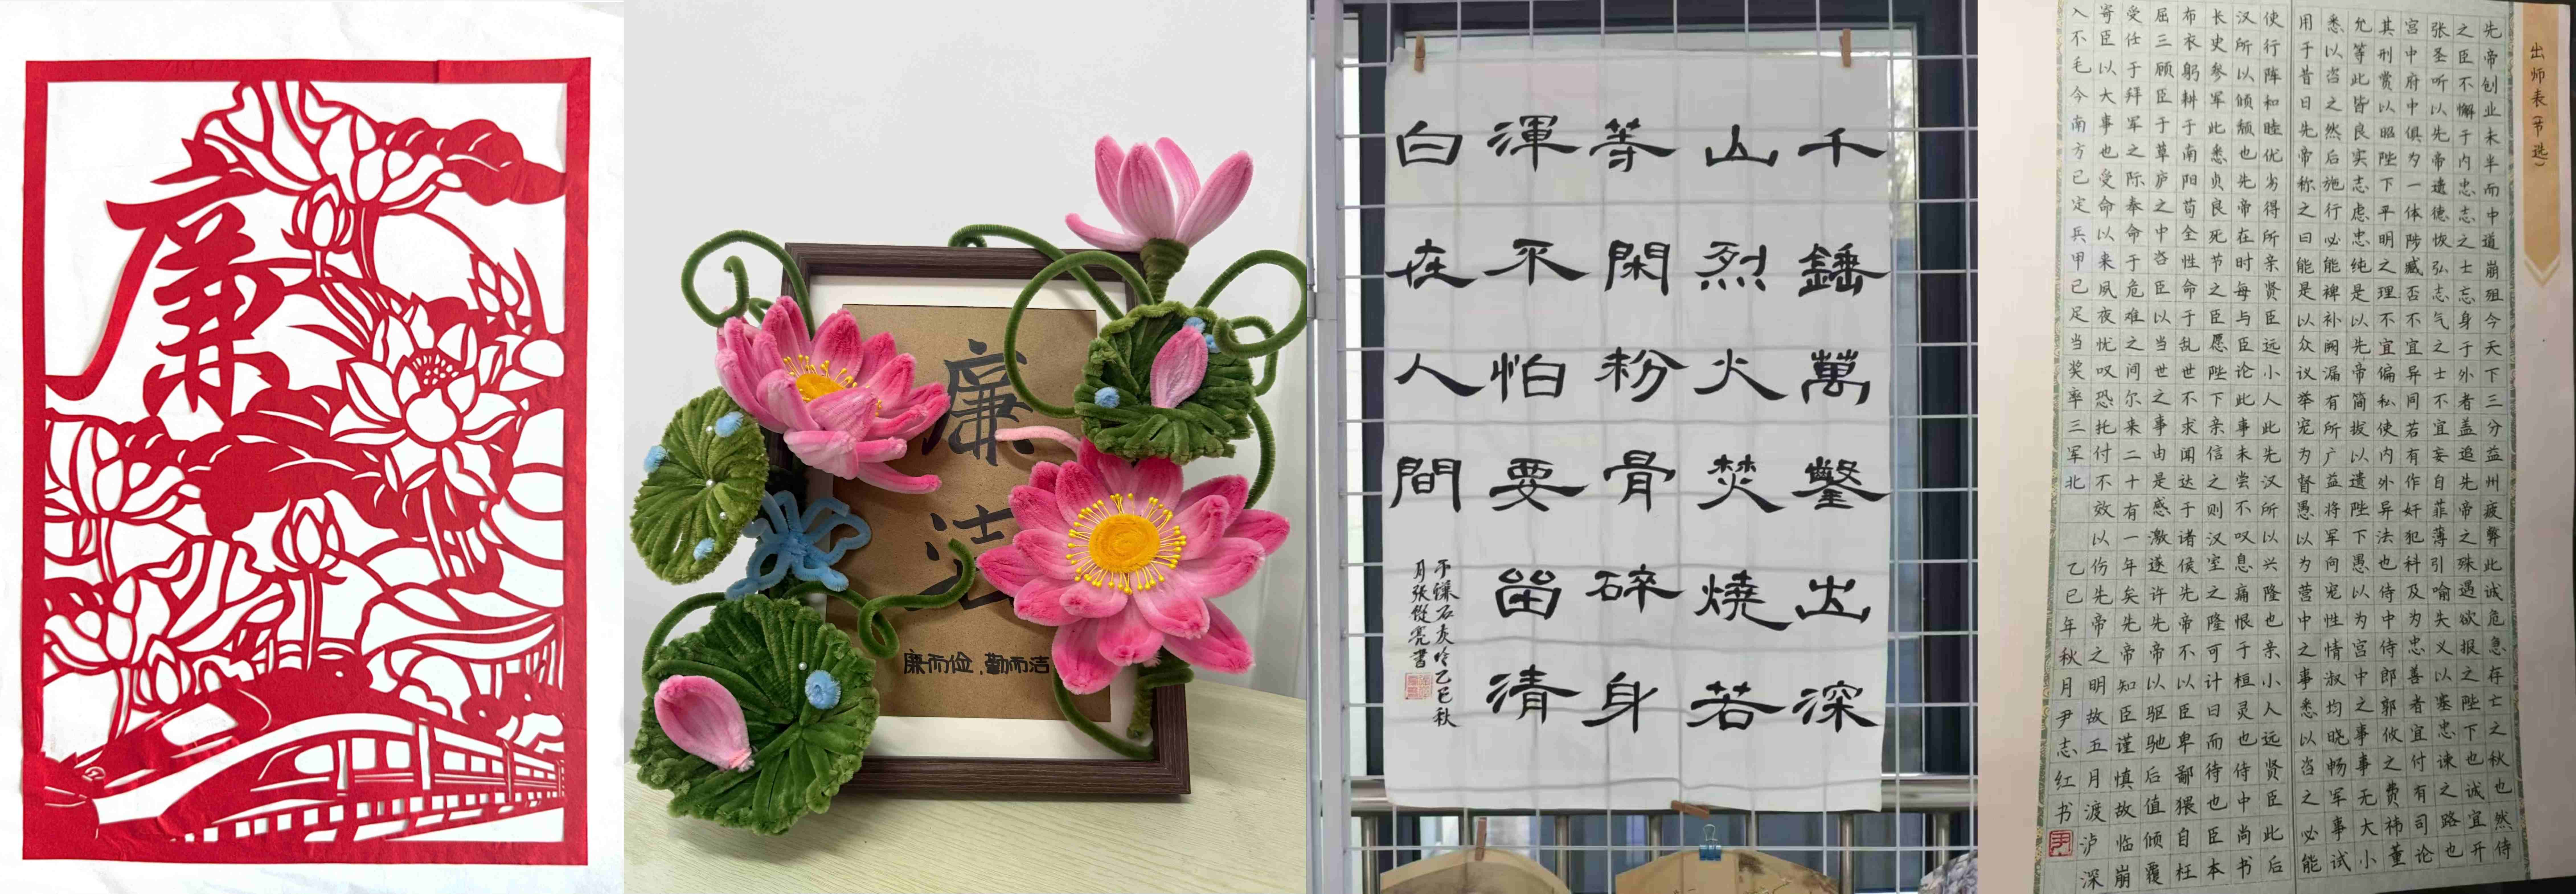 廉
廉
洁
廉而俭,勤而洁
千錘萬鑿出深
山烈火焚燒若
等閑粉骨碎身
渾不怕要畱清
白在人間
于謙石灰吟乙巳秋
月張從亮書
出师表(节选)
先帝创业未半而中道崩殂今天下三分益州疲弊此诚危急存亡之秋也然侍
之臣不懈于内忠志之士忘身于外者盖追先帝之殊遇欲报之陛下也诚宜开
张圣听以先帝遗德恢弘志气之士不宜妄自菲薄引喻失义以塞忠谏之路也
宫中府中俱为一体陟臧否不宜异同若有作奸犯科及为忠善者宜付有司论
其刑赏以昭陛下平明之理不宜偏私使内外异法也侍中侍郎郭攸之费祎董
允等此皆良实志虑忠纯是以先帝简拔以遗陛下愚以为宫中之事事无大小
悉以咨之然后施行必能裨补阙漏有所广益将军向宠性情淑均晓畅军事试
用于昔日先帝称之曰能是以众议举宠为督愚以为营中之事悉以咨之必能
使行阵和睦优劣得所亲贤臣远小人此先汉所以兴隆也亲小人远贤臣此后
汉所以倾颓也先帝在时每与臣论此事未尝不叹息痛恨于桓灵也侍中尚书
长史参军此悉贞良死节之臣愿陛下亲信之则汉室之隆可计日而待也臣本
布衣躬耕于南阳苟全性命于乱世不求闻达于诸侯先帝不以臣卑鄙猥自枉
屈三顾臣于草庐之中咨臣以当世之事由是感激遂许先帝以驱驰后值倾覆
受任于拜军之际奉命于危难之间尔来二十有一年矣先帝知臣谨慎故临崩
寄臣以大事也受命以来夙夜忧叹恐托付不效以伤先帝之明故五月渡泸深
入不毛今南方已定兵甲已足当奖率三军北
乙巳年秋月尹志红书